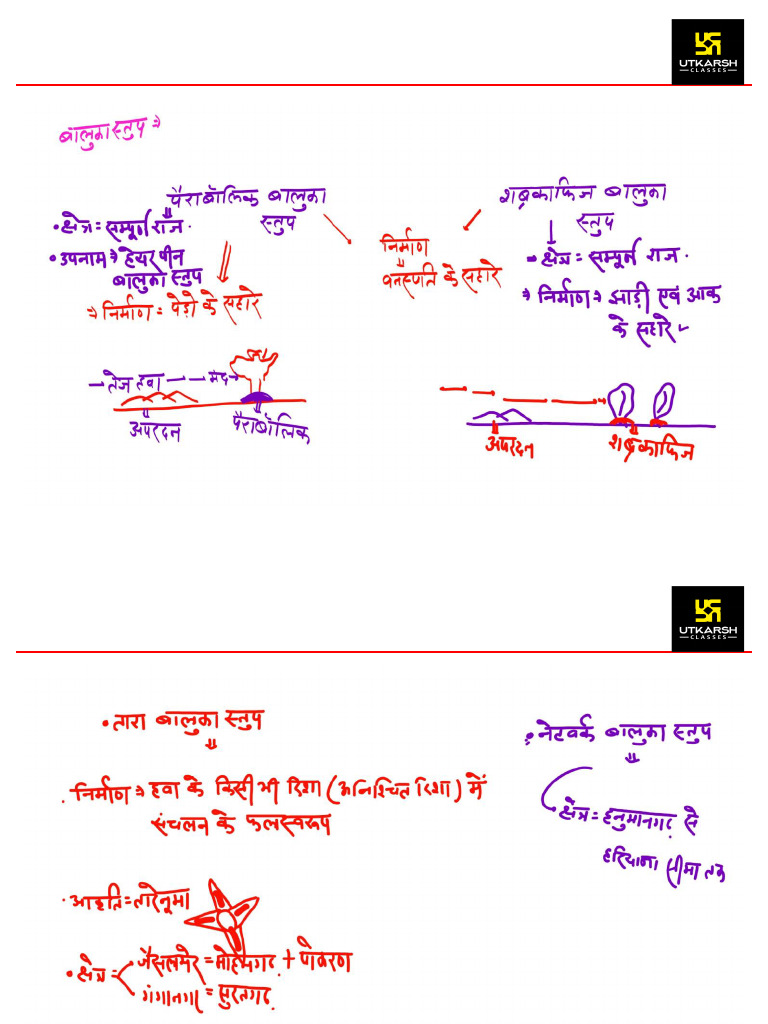 UTKARSH
CLASSES
बालुका स्तुप ⇒
पैराबॉलिक बालुका
स्तुप
• क्षेत्र = सम्पूर्ण राज.
• उपनाम ⇒ हेयर पीन
बालुका स्तुप
⇒ निर्माण = पेड़ो के सहारे
निर्माण
वनस्पति के सहारे
शब्रकाफिज बालुका
स्तुप
→ क्षेत्र = सम्पूर्ण राज.
⇒ निर्माण ⇒ झाड़ी एवं आक
के सहारे
तेज हवा मंद
अपरदन
पैराबॉलिक
अपरदन
शब्रकाफिज
UTKARSH
CLASSES
• तारा बालुका स्तुप
. निर्माण ⇒ हवा के किसी भी दिशा (अनिश्चित दिशा) में
संचलन के फलस्वरूप
• आकृति = तारेनूमा
• क्षेत्र =
जैसलमेर = मोहनगढ़ + पोकरण
गंगानगर = सुरतगढ़
• नेटवर्क बालुका स्तुप
• क्षेत्र = हनुमानगढ़ से
हरियाणा सीमा तक